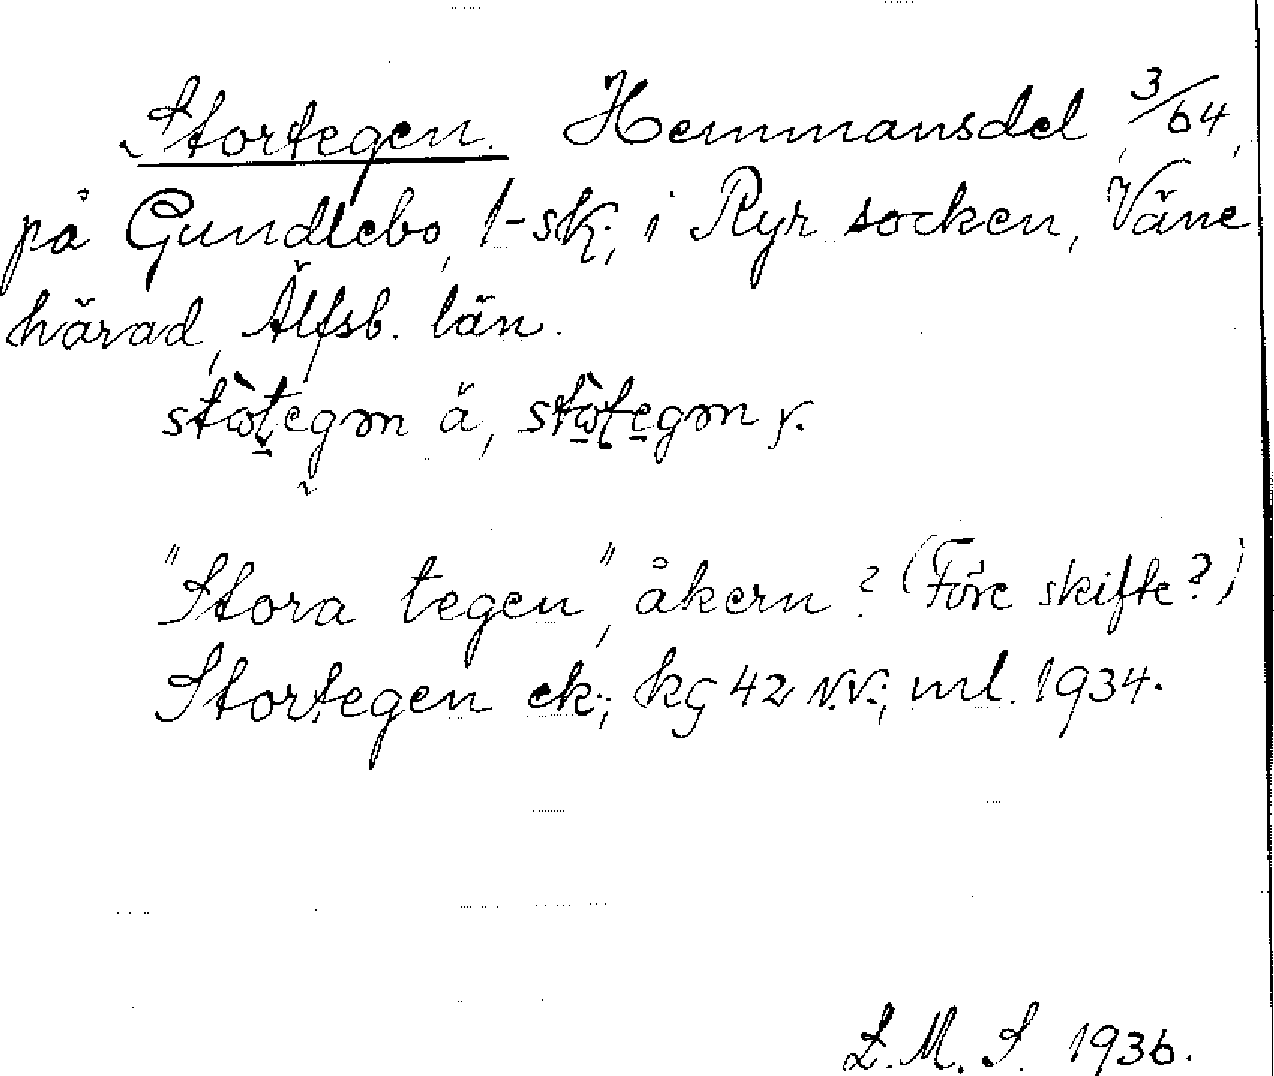 Stortegen. Hemmansdel, 3/64,
på Gundlebo, 1-sk., i Ryr socken, Väne
härad, Älfsb. län.
stòtegən ä, stòtegən y.
"Stora tegen", åkern? (Före skifte?)
Stortegen ek.; kg 42 N.V.; ml. 1934.
L.M.S. 1936.